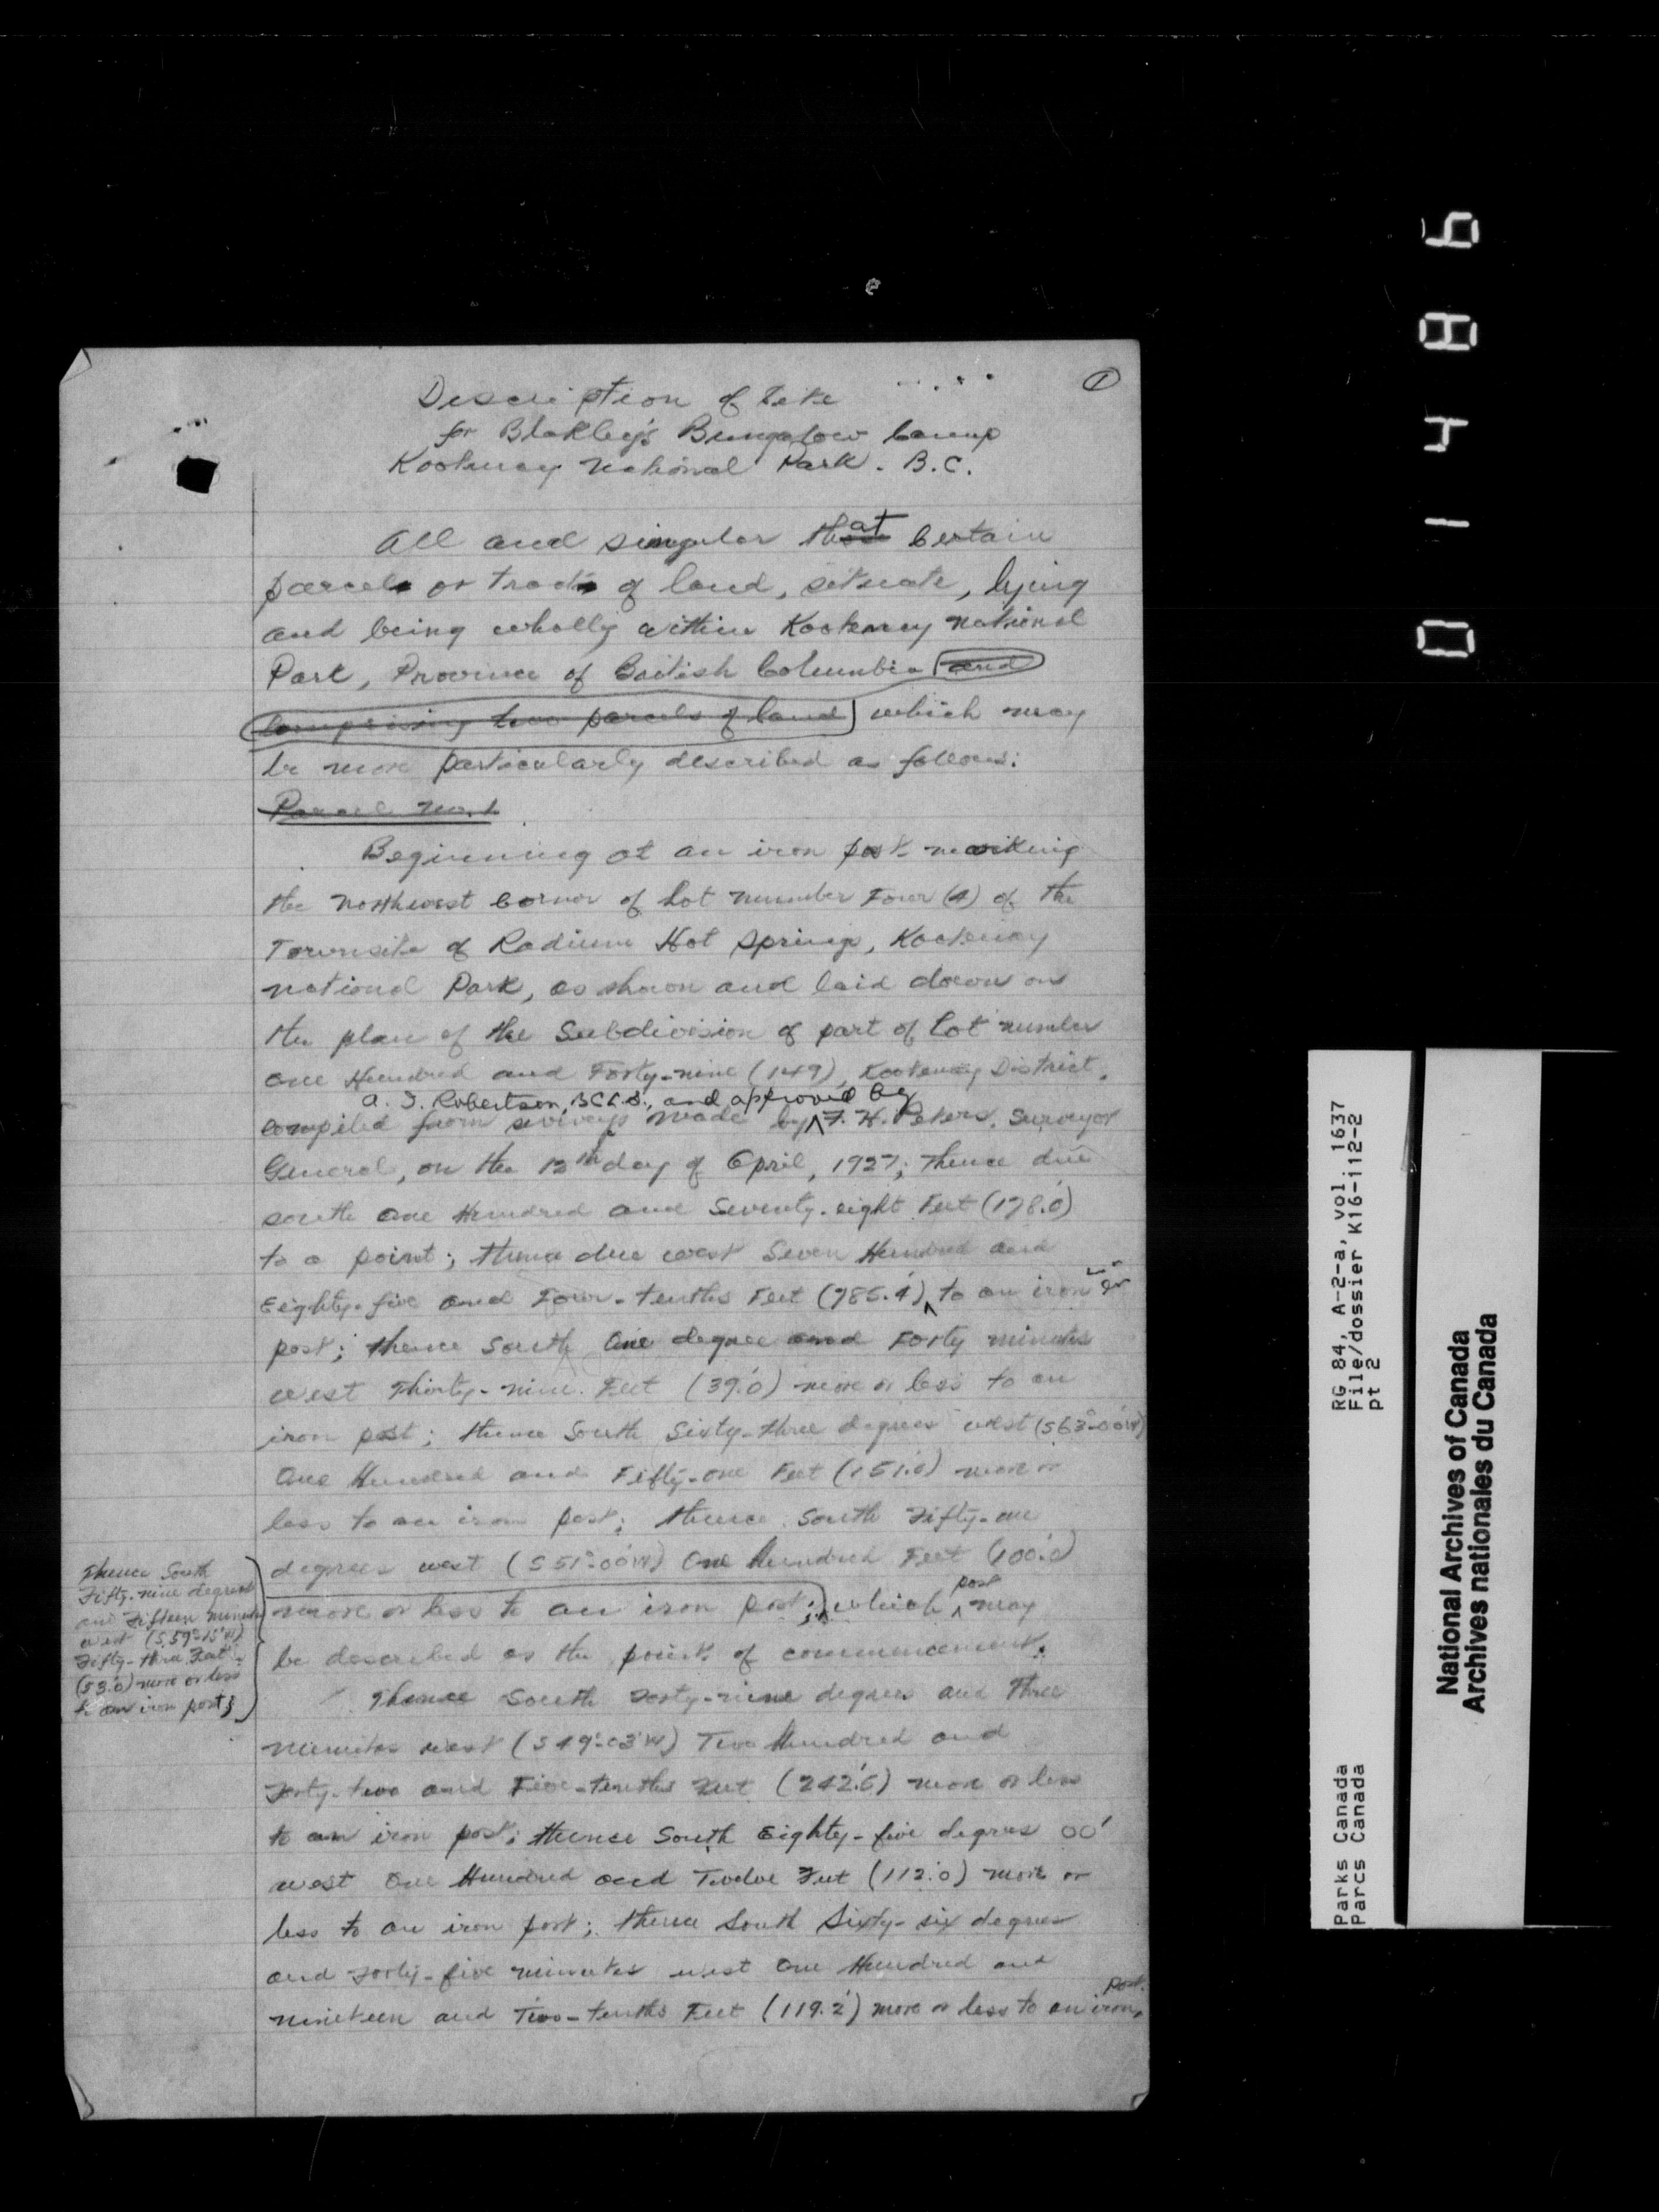 1
Description of Site
for Blakley's Bungalow Camp
Kootenay National Park. B.C.
All and singular that Certain
parcel or tract of land, situate, lying
and being wholly within Kootenay National
Park, Province of British Columbia and
comprising two parcels of land which may
be more particularly described as follows:
Parcel No. 1
Beginning at an iron post marking
the northwest corner of Lot number Four (4) of the
Townsite of Radium Hot Springs, Kootenay
National Park, as shown and laid down on
the plan of the Subdivision of part of Lot number
One Hundred and Forty-nine (149), Kootenay District,
A. I. Robertson, B.C.L.S., and approved by
compiled from surveys made by F. H. Peters, Surveyor
General, on the 12th day of April, 1927; thence due
south One Hundred and Seventy-eight Feet (178.0')
to a point; thence due west Seven Hundred and
Eighty-five and Four-tenths Feet (785.4') to an iron
post; thence South One degree and Forty minutes
west Thirty-nine Feet (39.0') more or less to an
iron post; thence South Sixty-three degrees west (S63°-00'W)
One Hundred and Fifty-one Feet (151.0') more or
less to an iron post; thence South Fifty-one
degrees west (S51°-00'W) One Hundred Feet (100.0')
more or less to an iron post; which post may
be described as the point of commencement.
Thence South
Fifty-nine degrees
and Fifteen minutes
west (S.59°-15'W)
Fifty-three Feet
(53.0') more or less
to an iron post;
Thence South Forty-nine degrees and Three
minutes west (S49°-03'W) Two Hundred and
Forty-two and Five-tenths Feet (242.5') more or less
to an iron post; thence South Eighty-five degrees 00'
west One Hundred and Twelve Feet (112.0') more or
less to an iron post; thence South Sixty-six degrees
and Forty-five minutes west One Hundred and
post.
Nineteen and Two-tenths Feet (119.2') more or less to an iron
01486
RG 84, A-2-a, vol. 1637
File/dossier K16-112-2
pt 2
Parks Canada
Parcs Canada
National Archives of Canada
Archives nationales du Canada